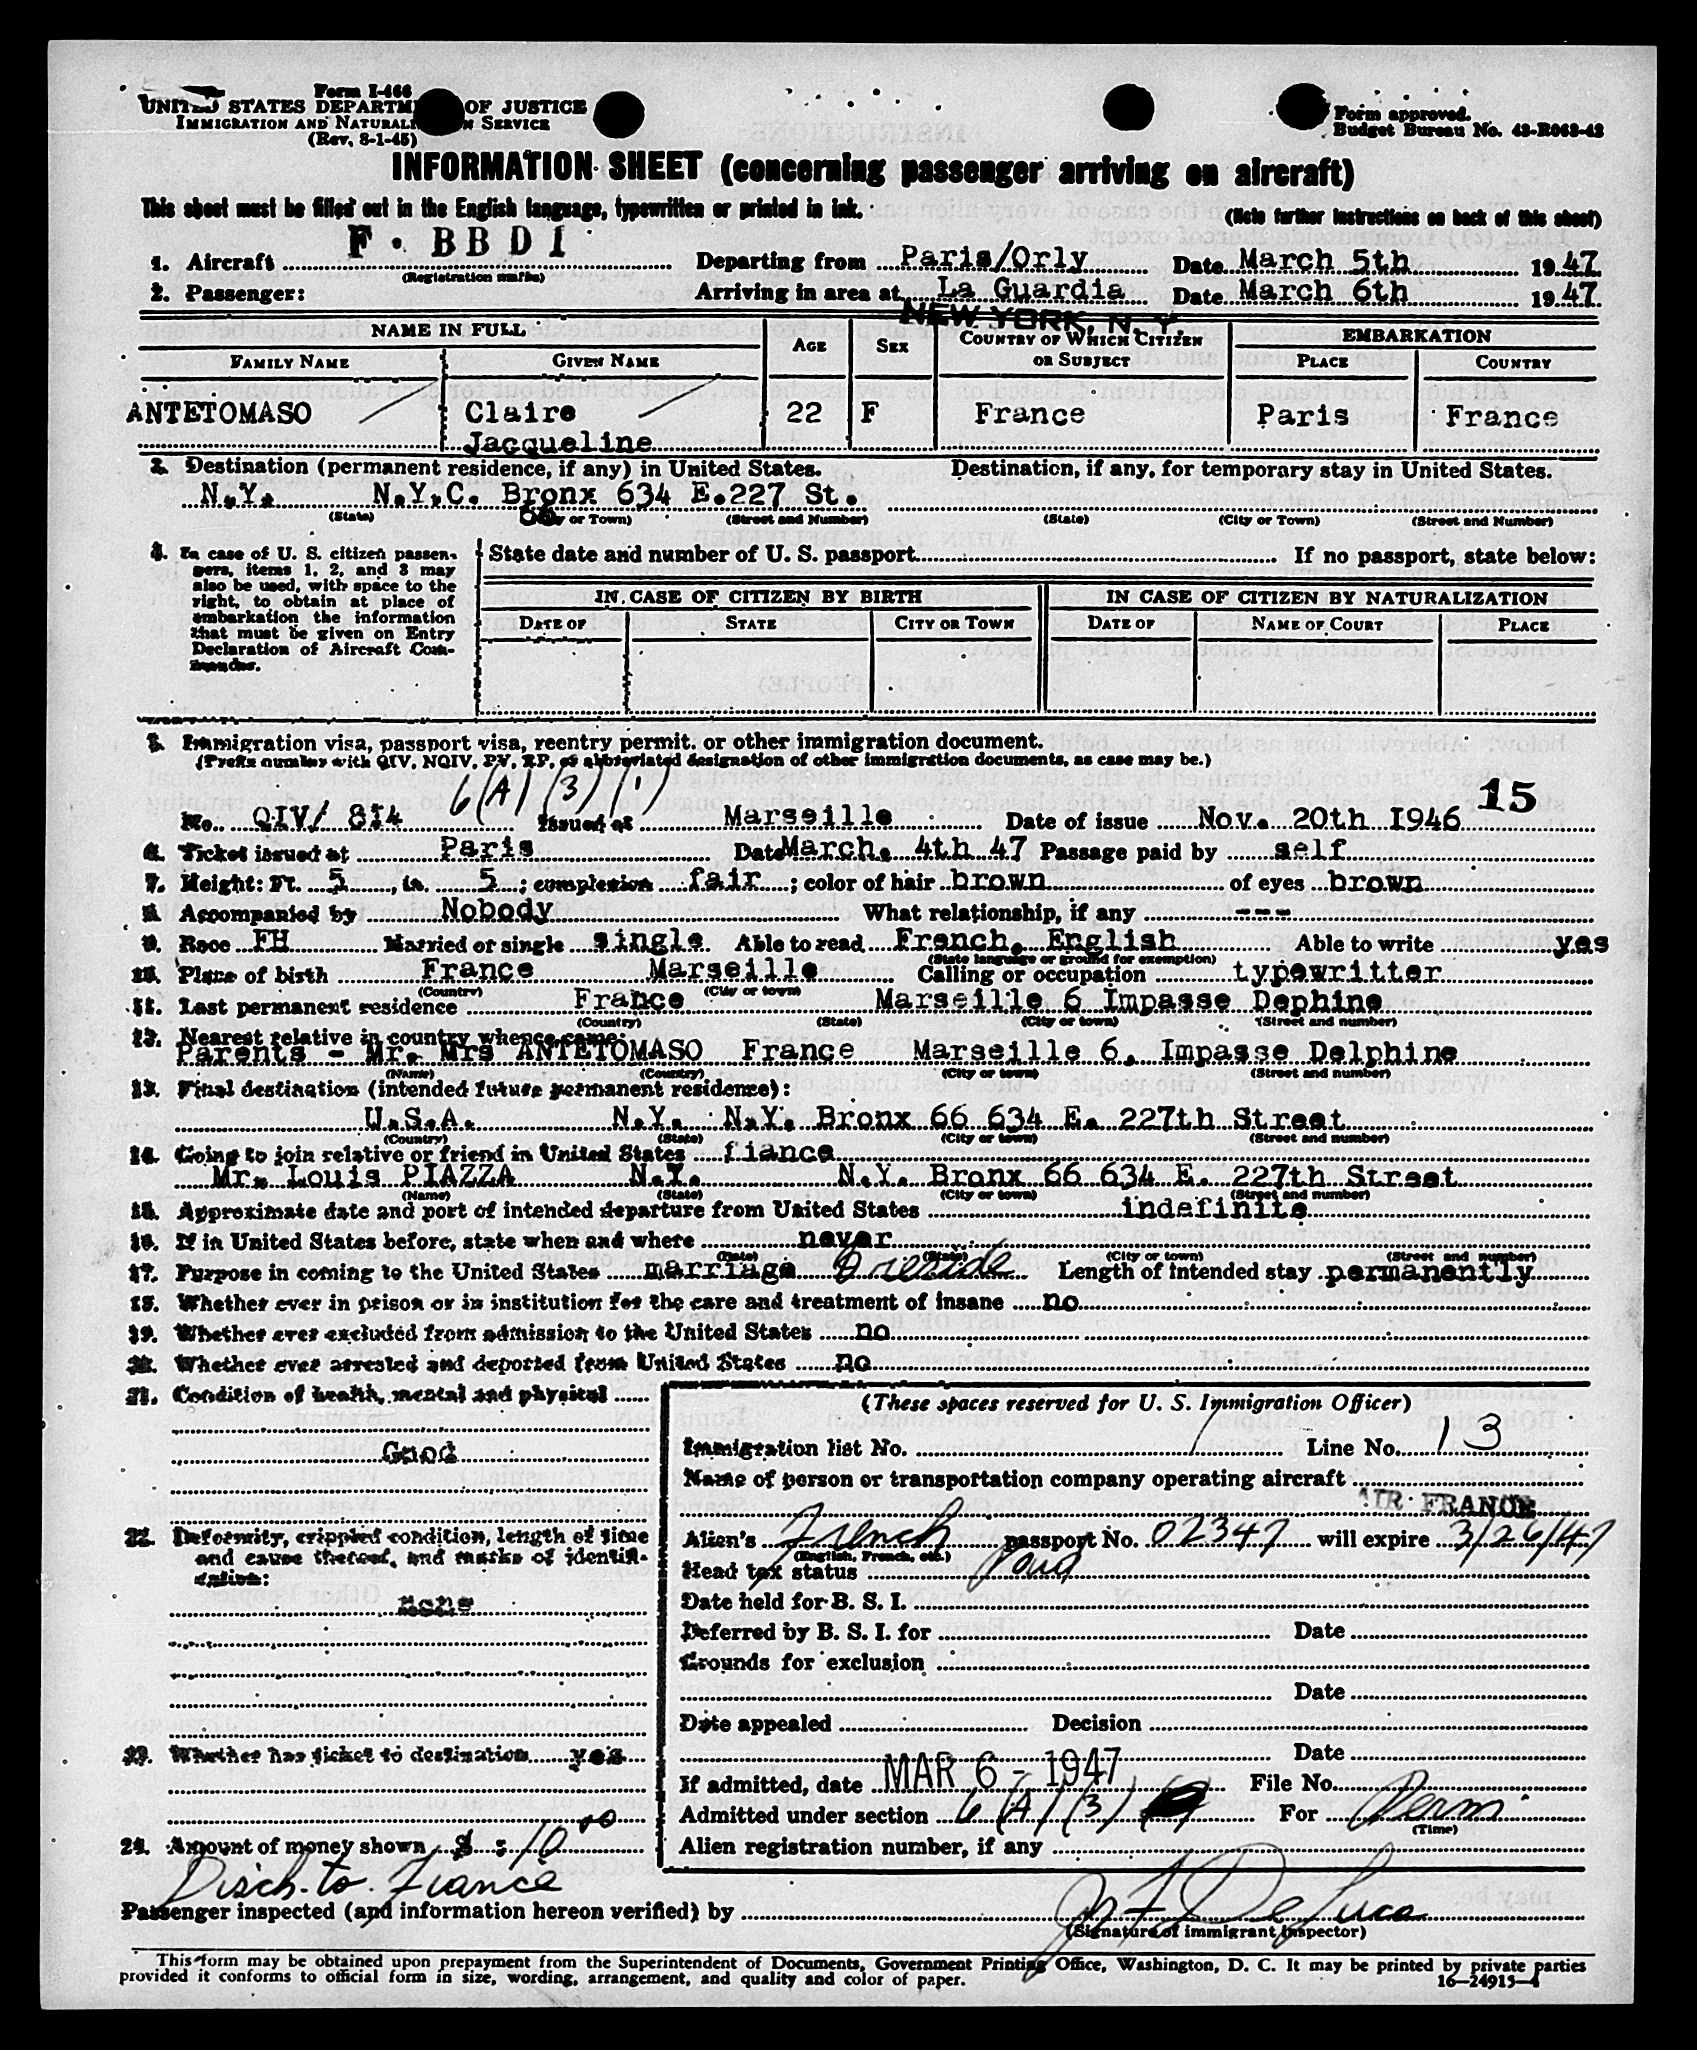 Form I-466
UNITED STATES DEPARTMENT OF JUSTICE
IMMIGRATION AND NATURALIZATION SERVICE
(Rev. 8-1-45)
Form approved.
Budget Bureau No. 43-R063-43
INFORMATION SHEET (concerning passenger arriving on aircraft)
This sheet must be filled out in the English language, typewritten or printed in ink.
(Note further instructions on back of this sheet)
1. Aircraft F. BBDI Departing from Paris/Orly Date March 5th 1947
(Registration marks)
2. Passenger: Arriving in area at La Guardia Date March 6th 1947
NEW YORK, N.Y.
NAME IN FULL AGE SEX COUNTRY OF WHICH CITIZEN OR SUBJECT EMBARKATION
FAMILY NAME GIVEN NAME PLACE COUNTRY
ANTETOMASO Claire 22 F France Paris France
Jacqueline
3. Destination (permanent residence, if any) in United States. Destination, if any, for temporary stay in United States.
N.Y. N.Y.C. Bronx 634 E.227 St.
66
(State) (City or Town) (Street and Number) (State) (City or Town) (Street and Number)
4. In case of U. S. citizen passengers, items 1, 2, and 3 may also be used, with space to the right, to obtain at place of embarkation the information that must be given on Entry Declaration of Aircraft Commander.
State date and number of U. S. passport If no passport, state below:
IN CASE OF CITIZEN BY BIRTH IN CASE OF CITIZEN BY NATURALIZATION
DATE OF STATE CITY OR TOWN DATE OF NAME OF COURT PLACE
5. Immigration visa, passport visa, reentry permit, or other immigration document.
(Prefix number with QIV, NQIV, PV, RP, or abbreviated designation of other immigration documents, as case may be.)
6(A)(3)(1)
15
No. QIV/ 814 Issued at Marseille Date of issue Nov. 20th 1946
6. Ticket issued at Paris Date March. 4th 47 Passage paid by self
7. Height: Ft. 5, in. 5; complexion fair; color of hair brown of eyes brown
8. Accompanied by Nobody What relationship, if any ---
9. Race FH Married or single single Able to read French. English Able to write yes
(State language or ground for exemption)
10. Place of birth France Marseille Calling or occupation typewritter
(Country) (City or town)
11. Last permanent residence France Marseille 6 Impasse Dephine
(Country) (State) (City or town) (Street and number)
12. Nearest relative in country whence came:
Parents - Mr. Mrs ANTETOMASO France Marseille 6, Impasse Delphine
(Name) (Country) (City or town) (Street and number)
13. Final destination (intended future permanent residence):
U.S.A. N.Y. N.Y. Bronx 66 634 E. 227th Street
(Country) (State) (City or town) (Street and number)
14. Going to join relative or friend in United States fiance
Mr. Louis PIAZZA N.Y. N.Y. Bronx 66 634 E. 227th Street
(Name) (State) (City or town) (Street and number)
15. Approximate date and port of intended departure from United States indefinite
16. If in United States before, state when and where never
(Date) (State) (City or town) (Street and number)
17. Purpose in coming to the United States marriage & reside Length of intended stay permanently
18. Whether ever in prison or in institution for the care and treatment of insane no
19. Whether ever excluded from admission to the United States no
20. Whether ever arrested and deported from United States no
21. Condition of health, mental and physical
Good
22. Deformity, crippled condition, length of time and cause thereof, and marks of identification:
None
23. Whether has ticket to destination yes
24. Amount of money shown $ : 10 00
Disch. to Fiancé
(These spaces reserved for U. S. Immigration Officer)
Immigration list No. 1 Line No. 13
Name of person or transportation company operating aircraft
AIR FRANCE
Alien's French passport No. 02347 will expire 3/26/47
(English, French, etc.)
Head tax status Paid
Date held for B. S. I.
Deferred by B. S. I. for Date
Grounds for exclusion
Date
Date appealed Decision
Date
If admitted, date MAR 6 - 1947 File No.
Admitted under section 6(A)(3) For Perm
(Time)
Alien registration number, if any
Passenger inspected (and information hereon verified) by J F DeLuca
(Signature of immigrant inspector)
This form may be obtained upon prepayment from the Superintendent of Documents, Government Printing Office, Washington, D. C. It may be printed by private parties
provided it conforms to official form in size, wording, arrangement, and quality and color of paper. 16-24915-4